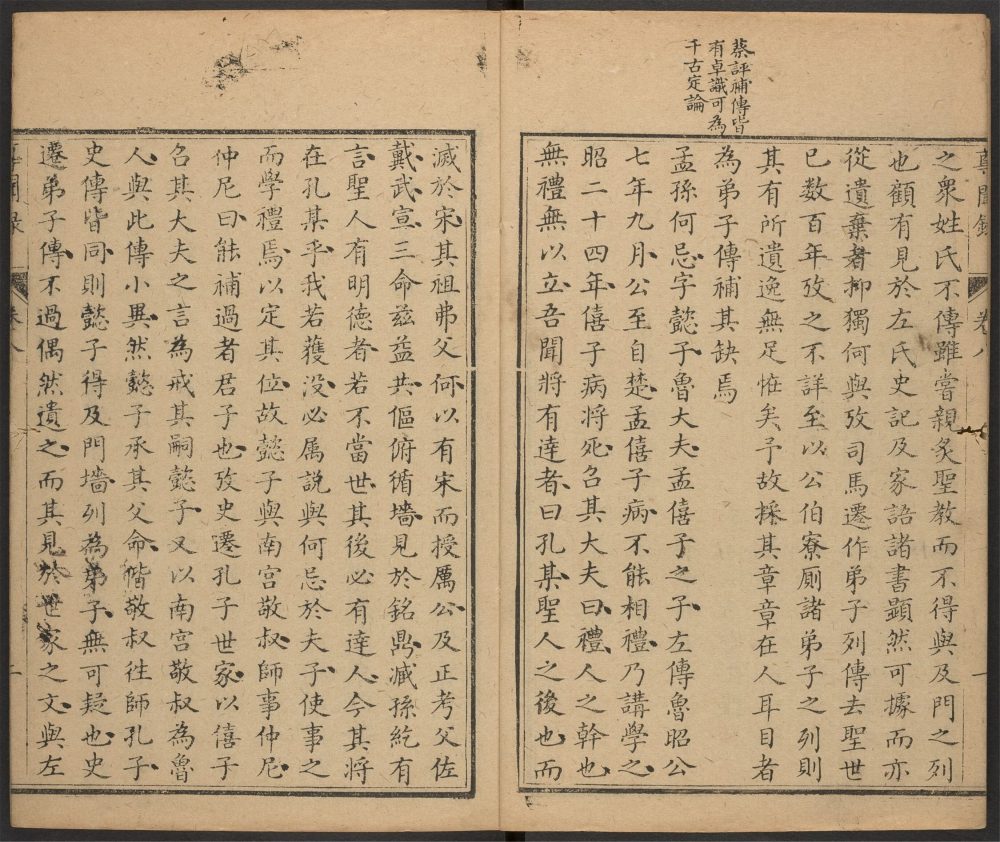 蔡評補傳皆
有卓識可為
千古定論
聞錄 卷八 一
之衆姓氏不傳雖嘗親炙聖教而不得與及門之列
也顧有見於左氏史記及家語諸書顯然可據而亦
從遺棄者抑獨何與攷司馬遷作弟子列傳去聖世
已數百年攷之不詳至以公伯寮厠諸弟子之列則
其有所遺逸無足怪矣予故採其章章在人耳目者
為弟子傳補其缺焉
孟孫何忌字懿子魯大夫孟僖子之子左傳魯昭公
七年九月公至自楚孟僖子病不能相禮乃講學之
昭二十四年僖子病將死召其大夫曰禮人之幹也
無禮無以立吾聞將有達者曰孔某聖人之後也而
滅於宋其祖弗父何以有宋而授厲公及正考父佐
戴武宣三命兹益共傴俯循墻見於銘鼎臧孫紇有
言聖人有明德者若不當世其後必有達人今其將
在孔某乎我若獲没必属説與何忌於夫子使事之
而學禮焉以定其位故懿子與南宫敬叔師事仲尼
仲尼曰能補過者君子也攷史遷孔子世家以僖子
召其大夫之言為戒其嗣懿子又以南宫敬叔為魯
人與此傳小異然懿子承其父命偕敬叔徃師孔子
史傳皆同則懿子得及門墻列為弟子無可疑也史
遷弟子傳不過偶然遺之而其見於世家之文與左
聞錄 卷八 一